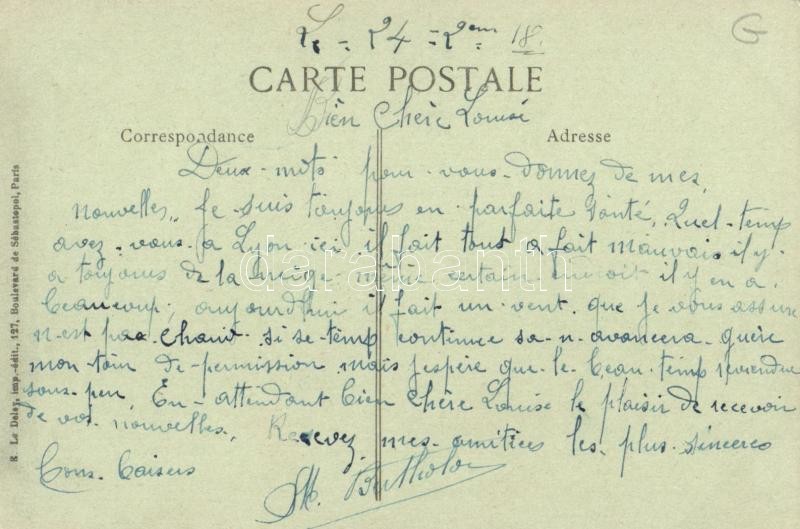 Le - 24 - 2em - 18.
CARTE POSTALE
Bien Chère Louise
Correspondance
Adresse
Deux-mots pour vous-donnez de mes,
nouvelles,, je suis toujours en parfaite santé, Quel-temp
avez-vous-a Lyon ici, il fait tout a fait mauvais il y-
a toujours de la neige même certain endroit il y en a.
beaucoup; aujourd'hui il fait un-vent. que je vous assure
n'est pas chaud-si se-temp continue sa-n-avancera-guère
mon-toin de-permission mais j'espère que-le-beau-temp reviendra
sous-peu, En-attendant bien chère Louise le plaisir de recevoir
de vos-nouvelles, Recevez mes-amitiées les-plus-sincères
Bons-baisers
E. Le Deley, imp.-édit., 127, Boulevard de Sébastopol, Paris
darabanth